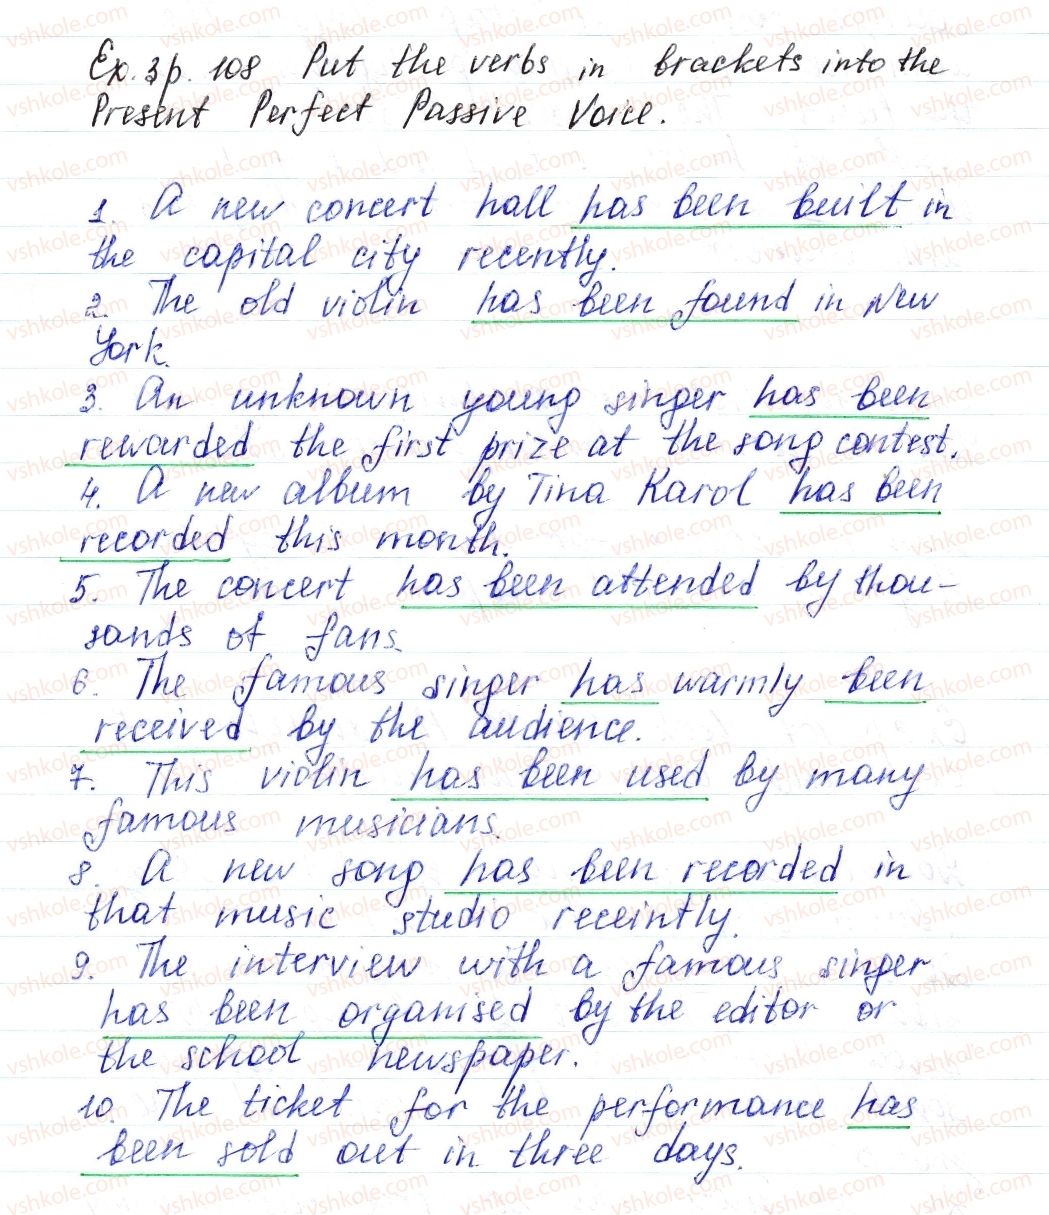 Ex. 3 p. 108 Put the verbs in brackets into the
Present Perfect Passive Voice.
1. A new concert hall has been built in
the capital city recently.
2. The old violin has been found in New
York.
3. An unknown young singer has been
rewarded the first prize at the song contest.
4. A new album by Tina Karol has been
recorded this month.
5. The concert has been attended by thou-
sands of fans.
6. The famous singer has warmly been
received by the audience.
7. This violin has been used by many
famous musicians.
8. A new song has been recorded in
that music studio receintly.
9. The interview with a famous singer
has been organised by the editor or
the school newspaper.
10. The ticket for the performance has
been sold out in three days.
vshkole.com